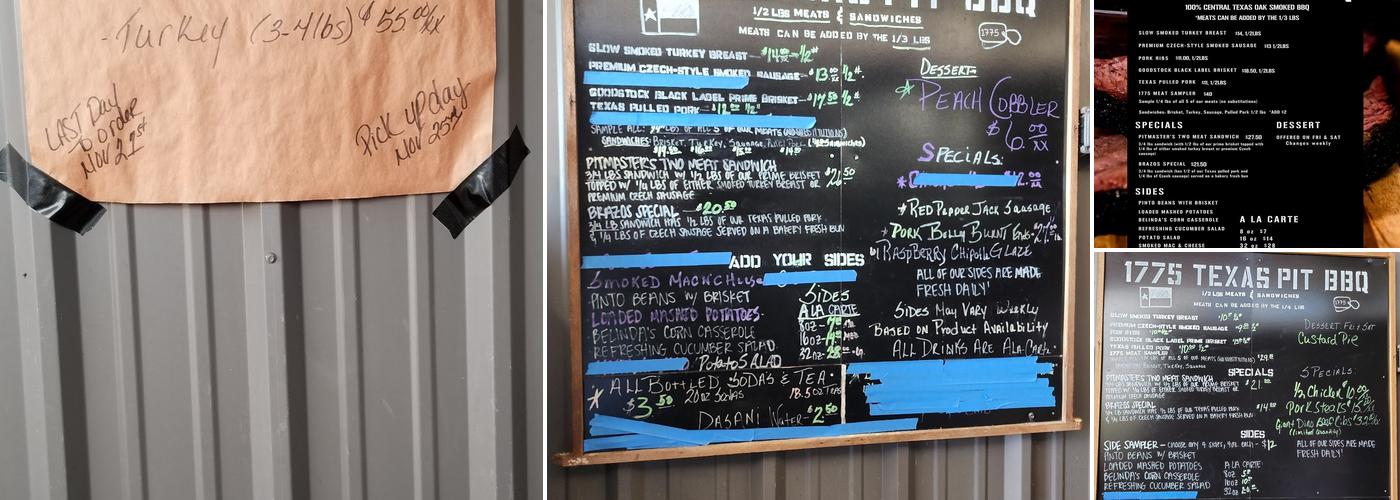 -Turkey (3-4lbs) $55.00/xx
LAST Day
to order
Nov 21st
Pick up day
Nov 25th
PIT BBQ
1/2 LBS MEATS & SANDWICHES
MEATS CAN BE ADDED BY THE 1/3 LBS
1775
SLOW SMOKED TURKEY BREAST $14.00 1/2#
PREMIUM CZECH-STYLE SMOKED SAUSAGE $13.00 1/2#
GOODSTOCK BLACK LABEL PRIME BRISKET 1/2#
TEXAS PULLED PORK
SAMPLE ALL: OF OUR MEATS
SANDWICHES: BRISKET, TURKEY, SAUSAGE,
PITMASTER'S TWO MEAT SANDWICH
3/4 LBS SANDWICH W/ 1/2 LBS OF OUR PRIME BRISKET
TOPPED W/ 1/4 LBS OF EITHER SMOKED TURKEY BREAST OR
PREMIUM CZECH SAUSAGE
$21.50
BRAZOS SPECIAL $20.50
3/4 LB SANDWICH HAS 1/2 LBS OF OUR TEXAS PULLED PORK
& 1/4 LBS OF CZECH SAUSAGE SERVED ON A BAKERY FRESH BUN
ADD YOUR SIDES
SMOKED MAC N' CHEESE
PINTO BEANS W/ BRISKET
LOADED MASHED POTATOES
BELINDA'S CORN CASSEROLE
REFRESHING CUCUMBER SALAD
POTATO SALAD
Sides
A LA CARTE
8oz
16oz
32oz
ALL BOTTLED SODAS & TEA
20oz Sodas 18.5 oz TEAS
$3.50
DASANI Water - $2.50
DESSERTS
PEACH COBBLER
$6.00/xx
SPECIALS:
RED Pepper Jack Sausage
PORK Belly BURNT Ends
w/ RASPBERRY CHIPOTLE GLAZE
ALL OF OUR SIDES ARE MADE
FRESH DAILY!
Sides May Vary Weekly
BASED on Product Availability
ALL DRINKS ARE ALA-CARTE
100% CENTRAL TEXAS OAK SMOKED BBQ
*MEATS CAN BE ADDED BY THE 1/3 LBS
SLOW SMOKED TURKEY BREAST $14, 1/2LBS
PREMIUM CZECH-STYLE SMOKED SAUSAGE $13 1/2LBS
PORK RIBS $18.00, 1/2LBS
GOODSTOCK BLACK LABEL BRISKET $18.50, 1/2LBS
TEXAS PULLED PORK $11, 1/2LBS
1775 MEAT SAMPLER $40
Sample 1/4 lbs of all 5 of our meats (no substitutions)
Sandwiches: Brisket, Turkey, Sausage, Pulled Pork 1/2 lbs *ADD $2
SPECIALS
PITMASTER'S TWO MEAT SANDWICH $27.50
3/4 lbs sandwich (with 1/2 lbs of our prime brisket topped with
1/4 lbs of either smoked turkey breast or premium Czech
sausage)
BRAZOS SPECIAL $21.50
3/4 lbs sandwich (has 1/2 lbs of our Texas pulled pork and
1/4 lbs of Czech sausage) served on a bakery fresh bun
DESSERT
OFFERED ON FRI & SAT
Changes weekly
SIDES
PINTO BEANS WITH BRISKET
LOADED MASHED POTATOES
BELINDA'S CORN CASSEROLE
REFRESHING CUCUMBER SALAD
POTATO SALAD
SMOKED MAC & CHEESE
A LA CARTE
8 oz $7
16 oz $14
32 oz $28
1775 TEXAS PIT BBQ
1/2 LBS MEATS & SANDWICHES
MEATS CAN BE ADDED BY THE 1/4 LBS
1775
SLOW SMOKED TURKEY BREAST
PREMIUM CZECH-STYLE SMOKED SAUSAGE
PORK RIBS
GOODSTOCK BLACK LABEL PRIME BRISKET
TEXAS PULLED PORK
1775 MEAT SAMPLER
SPECIALS
PITMASTER'S TWO MEAT SANDWICH
3/4 LBS SANDWICH W/ 1/2 LBS OF OUR PRIME BRISKET
TOPPED W/ 1/4 LBS OF EITHER SMOKED TURKEY BREAST OR
PREMIUM CZECH SAUSAGE
BRAZOS SPECIAL
3/4 LB SANDWICH HAS 1/2 LBS OF OUR TEXAS PULLED PORK
& 1/4 LBS OF CZECH SAUSAGE SERVED ON A BAKERY FRESH BUN
SIDES
SIDE SAMPLER - CHOOSE ANY 4 SIDES, $12
PINTO BEANS W/ BRISKET
LOADED MASHED POTATOES
BELINDA'S CORN CASSEROLE
REFRESHING CUCUMBER SALAD
A LA CARTE
8oz
16oz
32oz
DESSERT FRI & SAT
Custard Pie
SPECIALS:
1/2 Chicken
Pork Steaks
Giant Dino Beef Ribs
(Limited Quantity)
ALL OF OUR SIDES ARE MADE
FRESH DAILY!